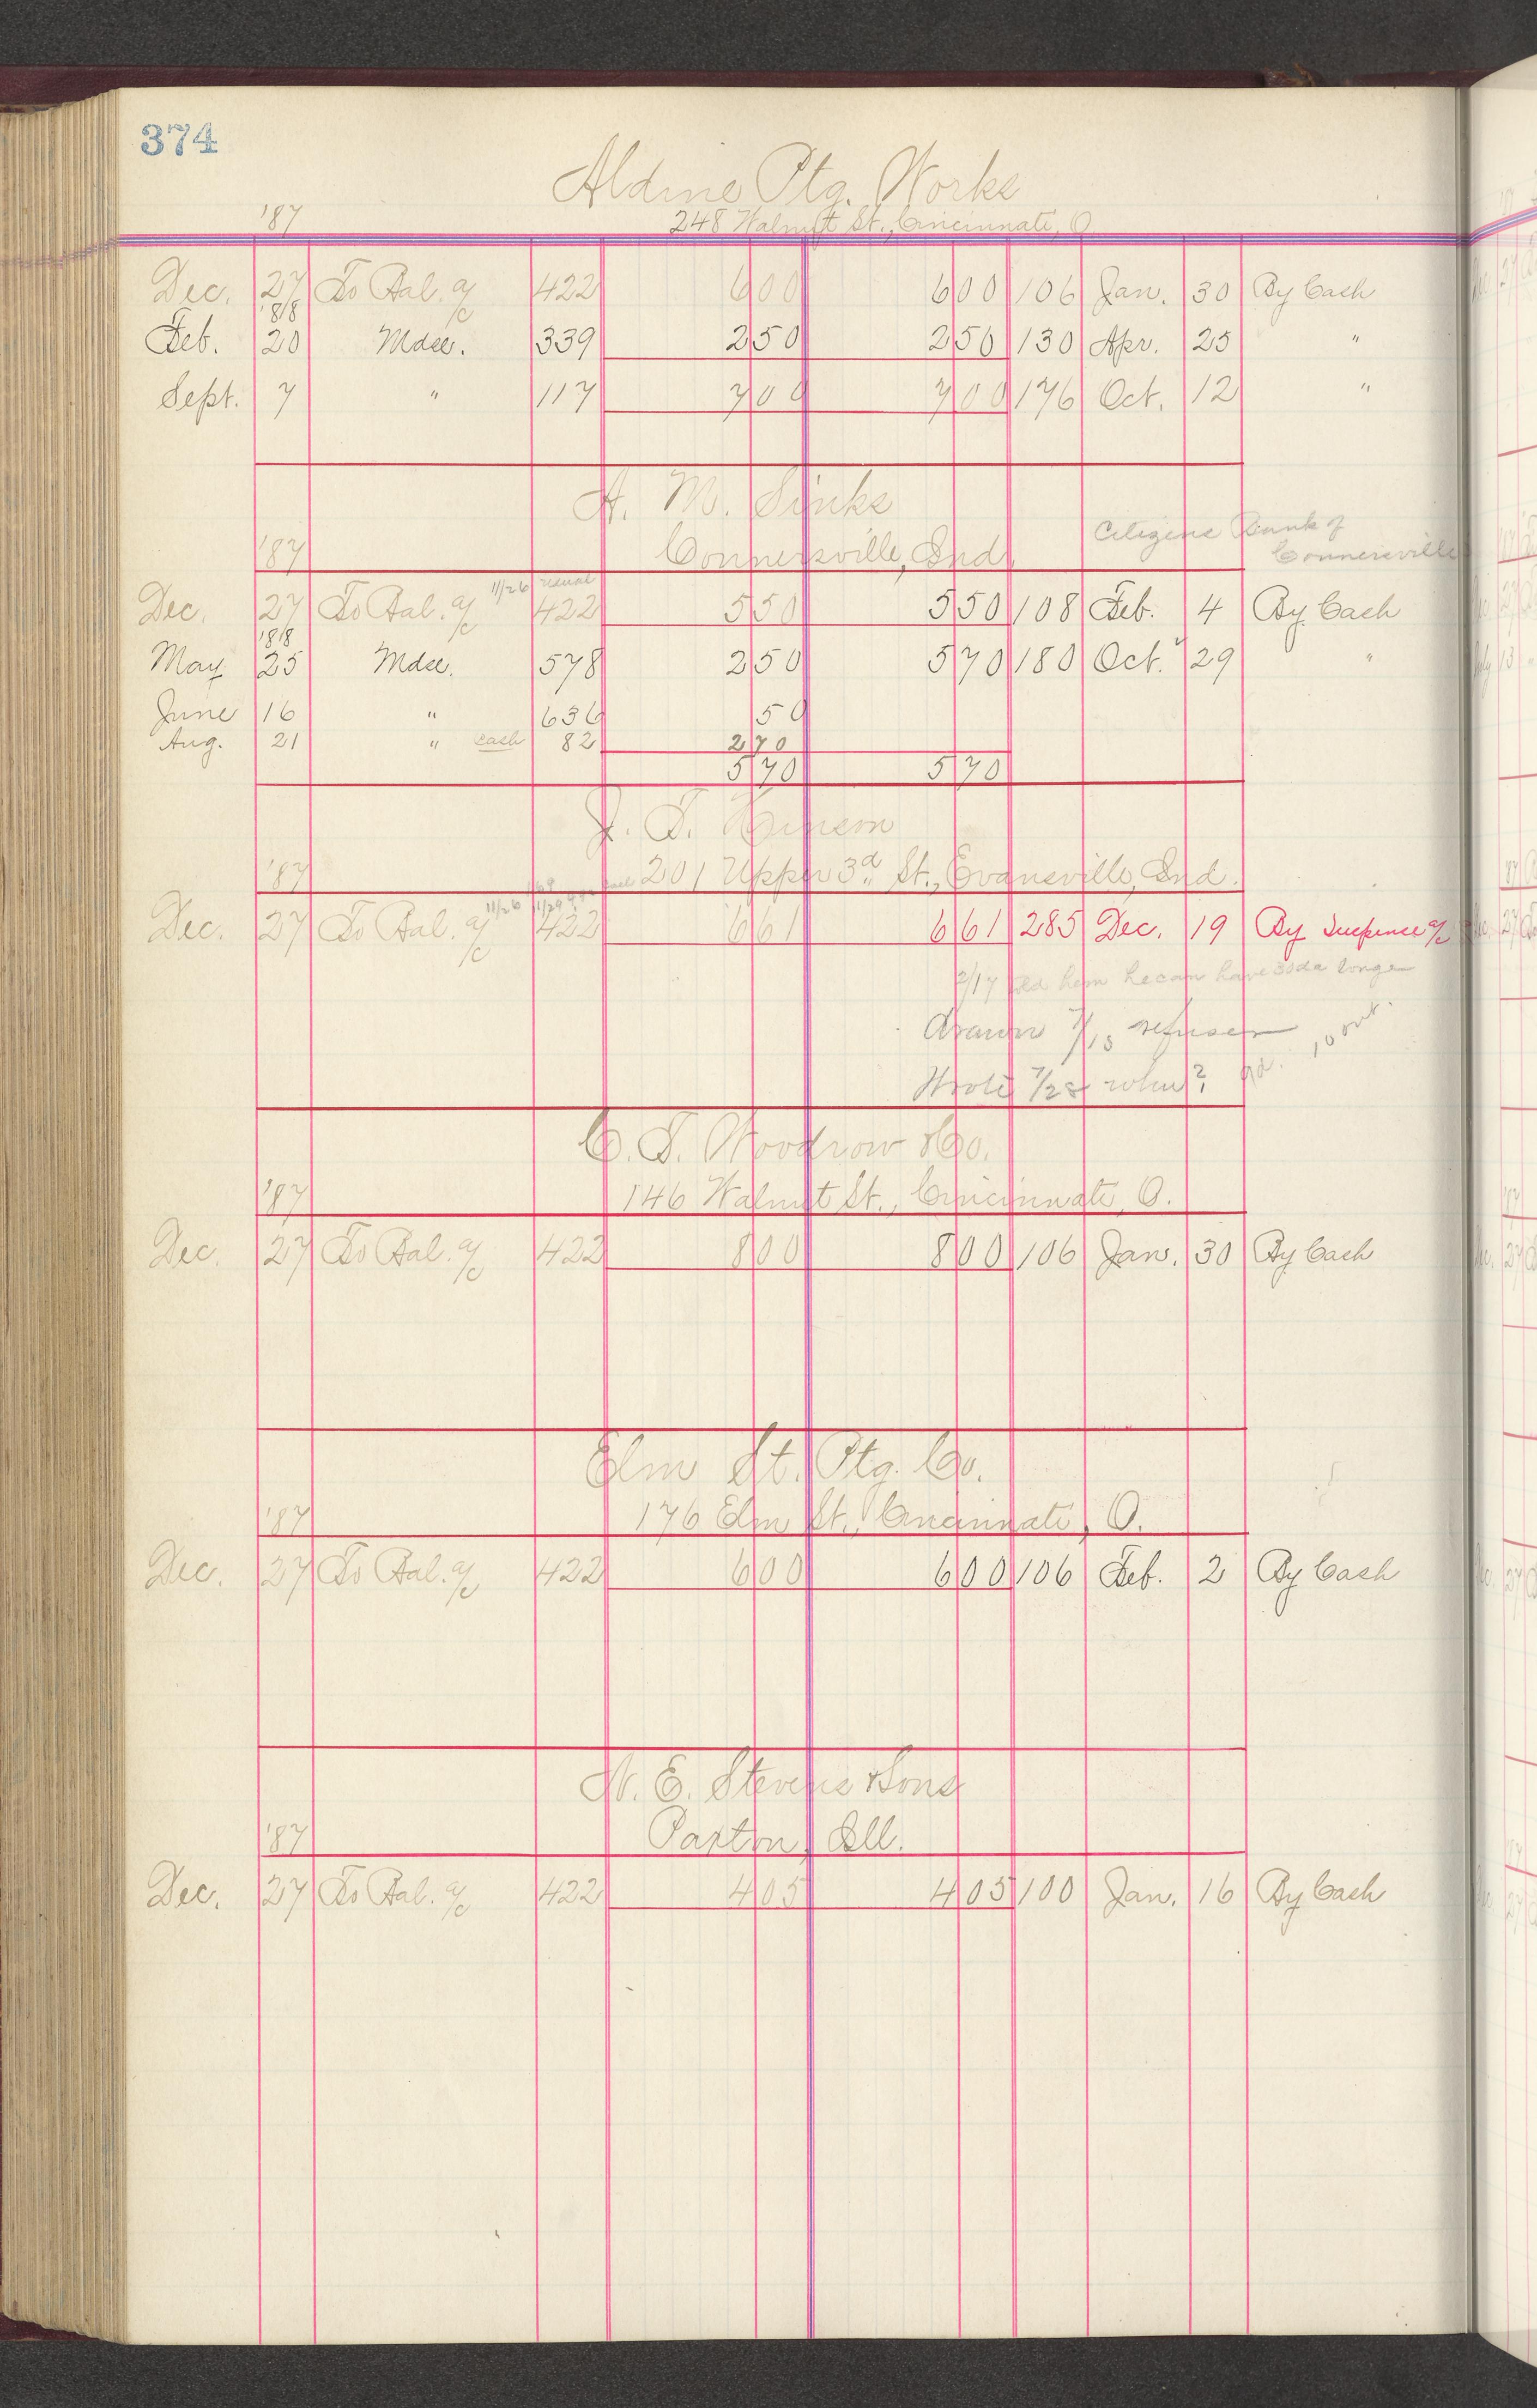 374
Aldine Ptg. Works
'87 248 Walnut St., Cincinnati, O.
Dec. 27 To Bal. a/c 422 6 00 6 00 106 Jan. 30 By Cash
'88
Feb. 20 Mdse. 339 2 50 2 50 130 Apr. 25 "
Sept. 7 " 117 7 00 7 00 176 Oct. 12 "
A. M. Sinks
Citizens Bank of
'87 Connersville, Ind. Connersville
11/26
Dec. 27 To Bal. a/c 422 5 50 5 50 108 Feb. 4 By Cash
'88
May 25 Mdse. 578 2 50 5 70 180 Oct. 29 "
June 16 " 636 50
Aug. 21 " cash 82 2 70
5 70 5 70
'87 201 Upper 3d St., Evansville, Ind.
11/26
Dec. 27 To Bal. a/c 422 6 61 6 61 285 Dec. 19 By Suspense a/c
2/17 him he can have 30 ds longer
drawn 7/13
Wrote 7/28 when?
C. T. Woodrow & Co.
'87 146 Walnut St., Cincinnati, O.
Dec. 27 To Bal. a/c 422 8 00 8 00 106 Jan. 30 By Cash
Elm St. Ptg. Co.
'87 176 Elm St., Cincinnati, O.
Dec. 27 To Bal. a/c 422 6 00 6 00 106 Feb. 2 By Cash
N. E. Stevens & Sons
'87 Paxton, Ill.
Dec. 27 To Bal. a/c 422 4 05 4 05 100 Jan. 16 By Cash